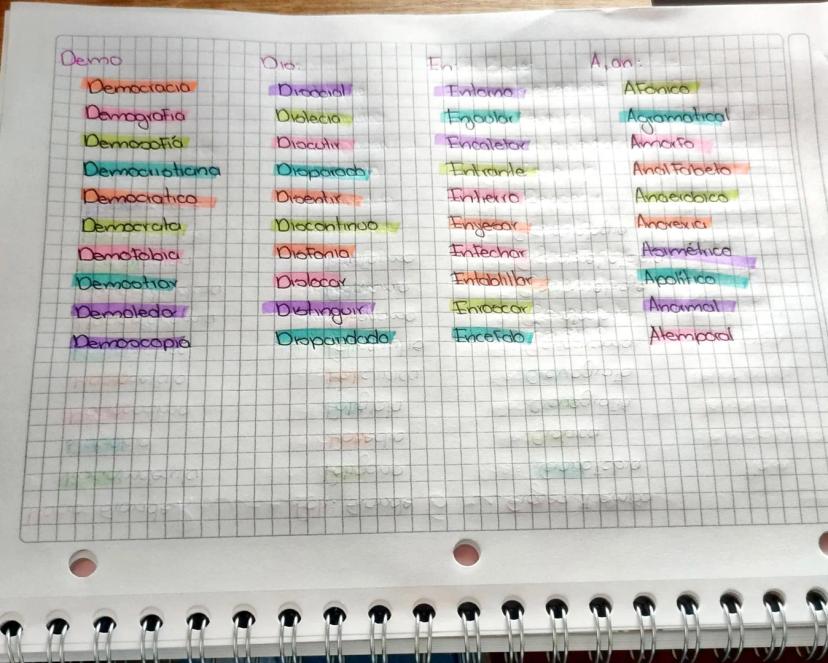 Demo
Democracia
Demografia
Demosofía
Democristiana
Democratico
Democrata
Demofobia
Demostrar
Demoledor
Demoscopia
Dis:
Disocial
Dislecia
Discutir
Disparado
Disentir
Discontinuo
Disfonia
Dislocar
Distinguir
En:
Entorno
Encaletar
Entrante
Entierro
Enyesar
Entablillar
Enroscar
A, an:
Afonico
Agramatical
Amorfo
Analfabeto
Anaerobico
Anorexia
Asimétrico
Apolitico
Anormal
Atemporal